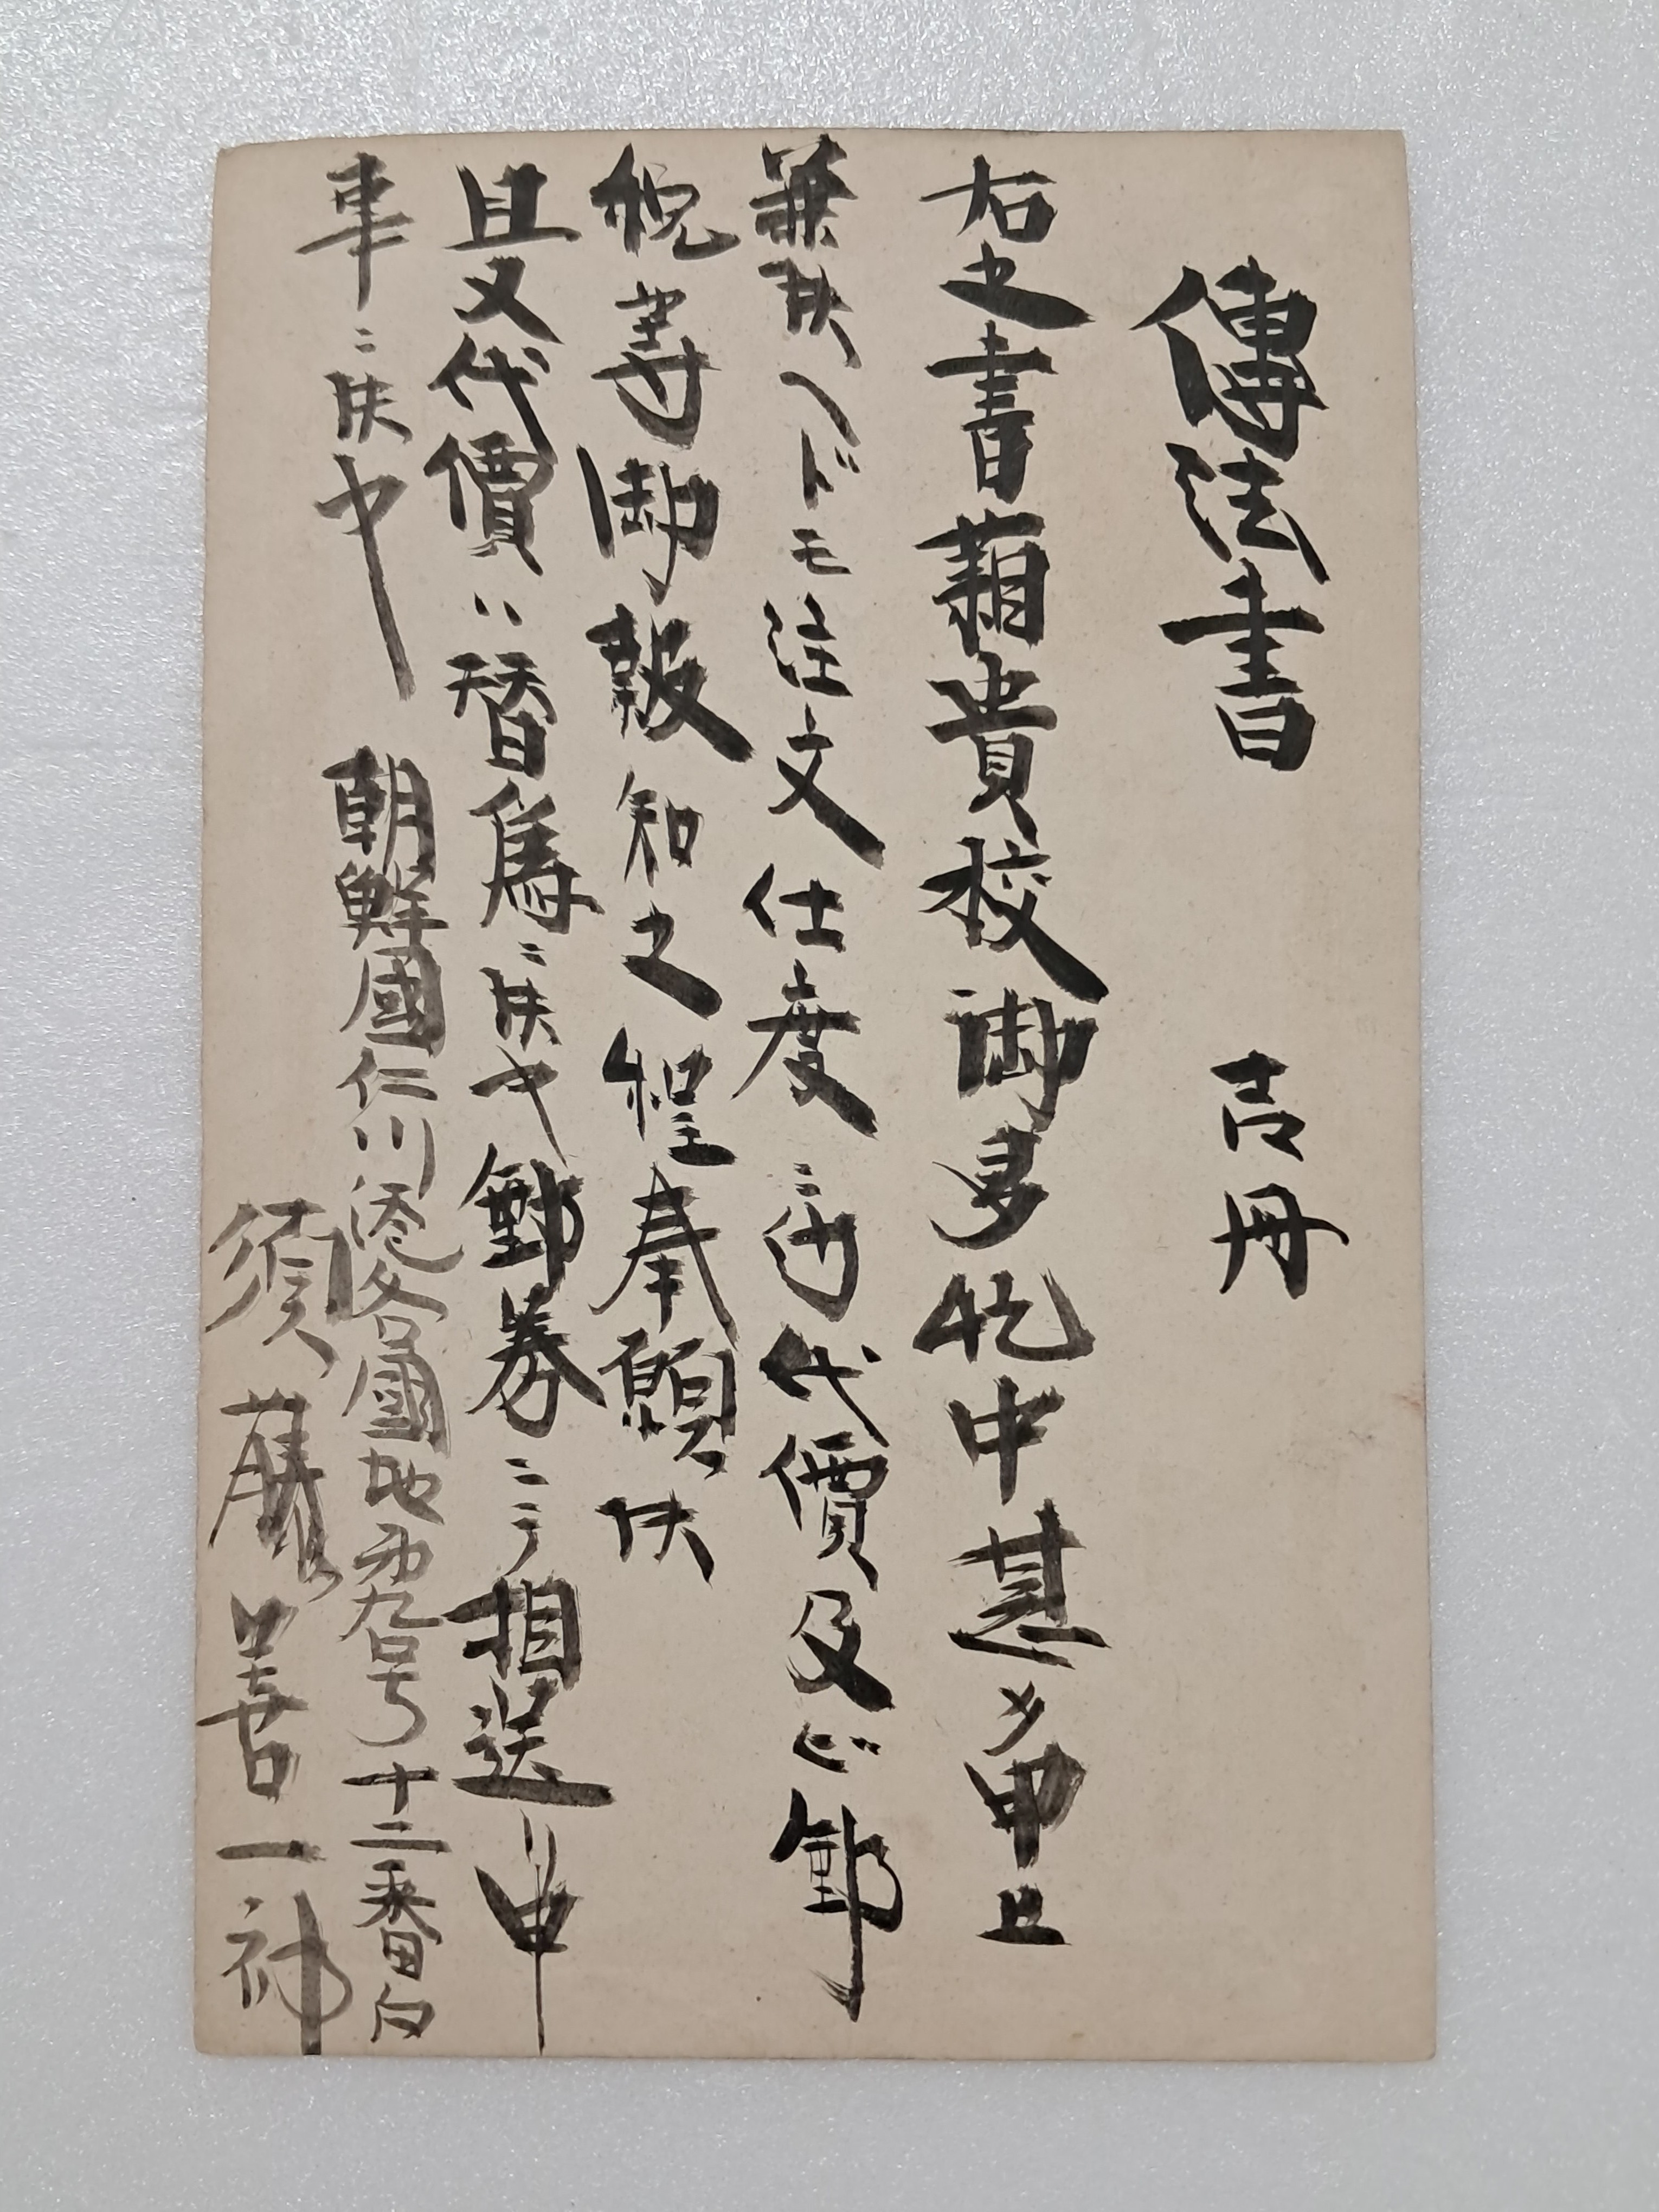 傳法書 壱冊
右之書籍貴校御多忙中甚タ申上
兼候ヘドモ注文仕度ニ付代價及ビ郵
税等御報知之程奉願候
且又代價ハ替為ニ候や郵券ニテ相送リ申
事ニ候や
朝鮮國仁川港各國地界九号十二番内
須藤善一郎